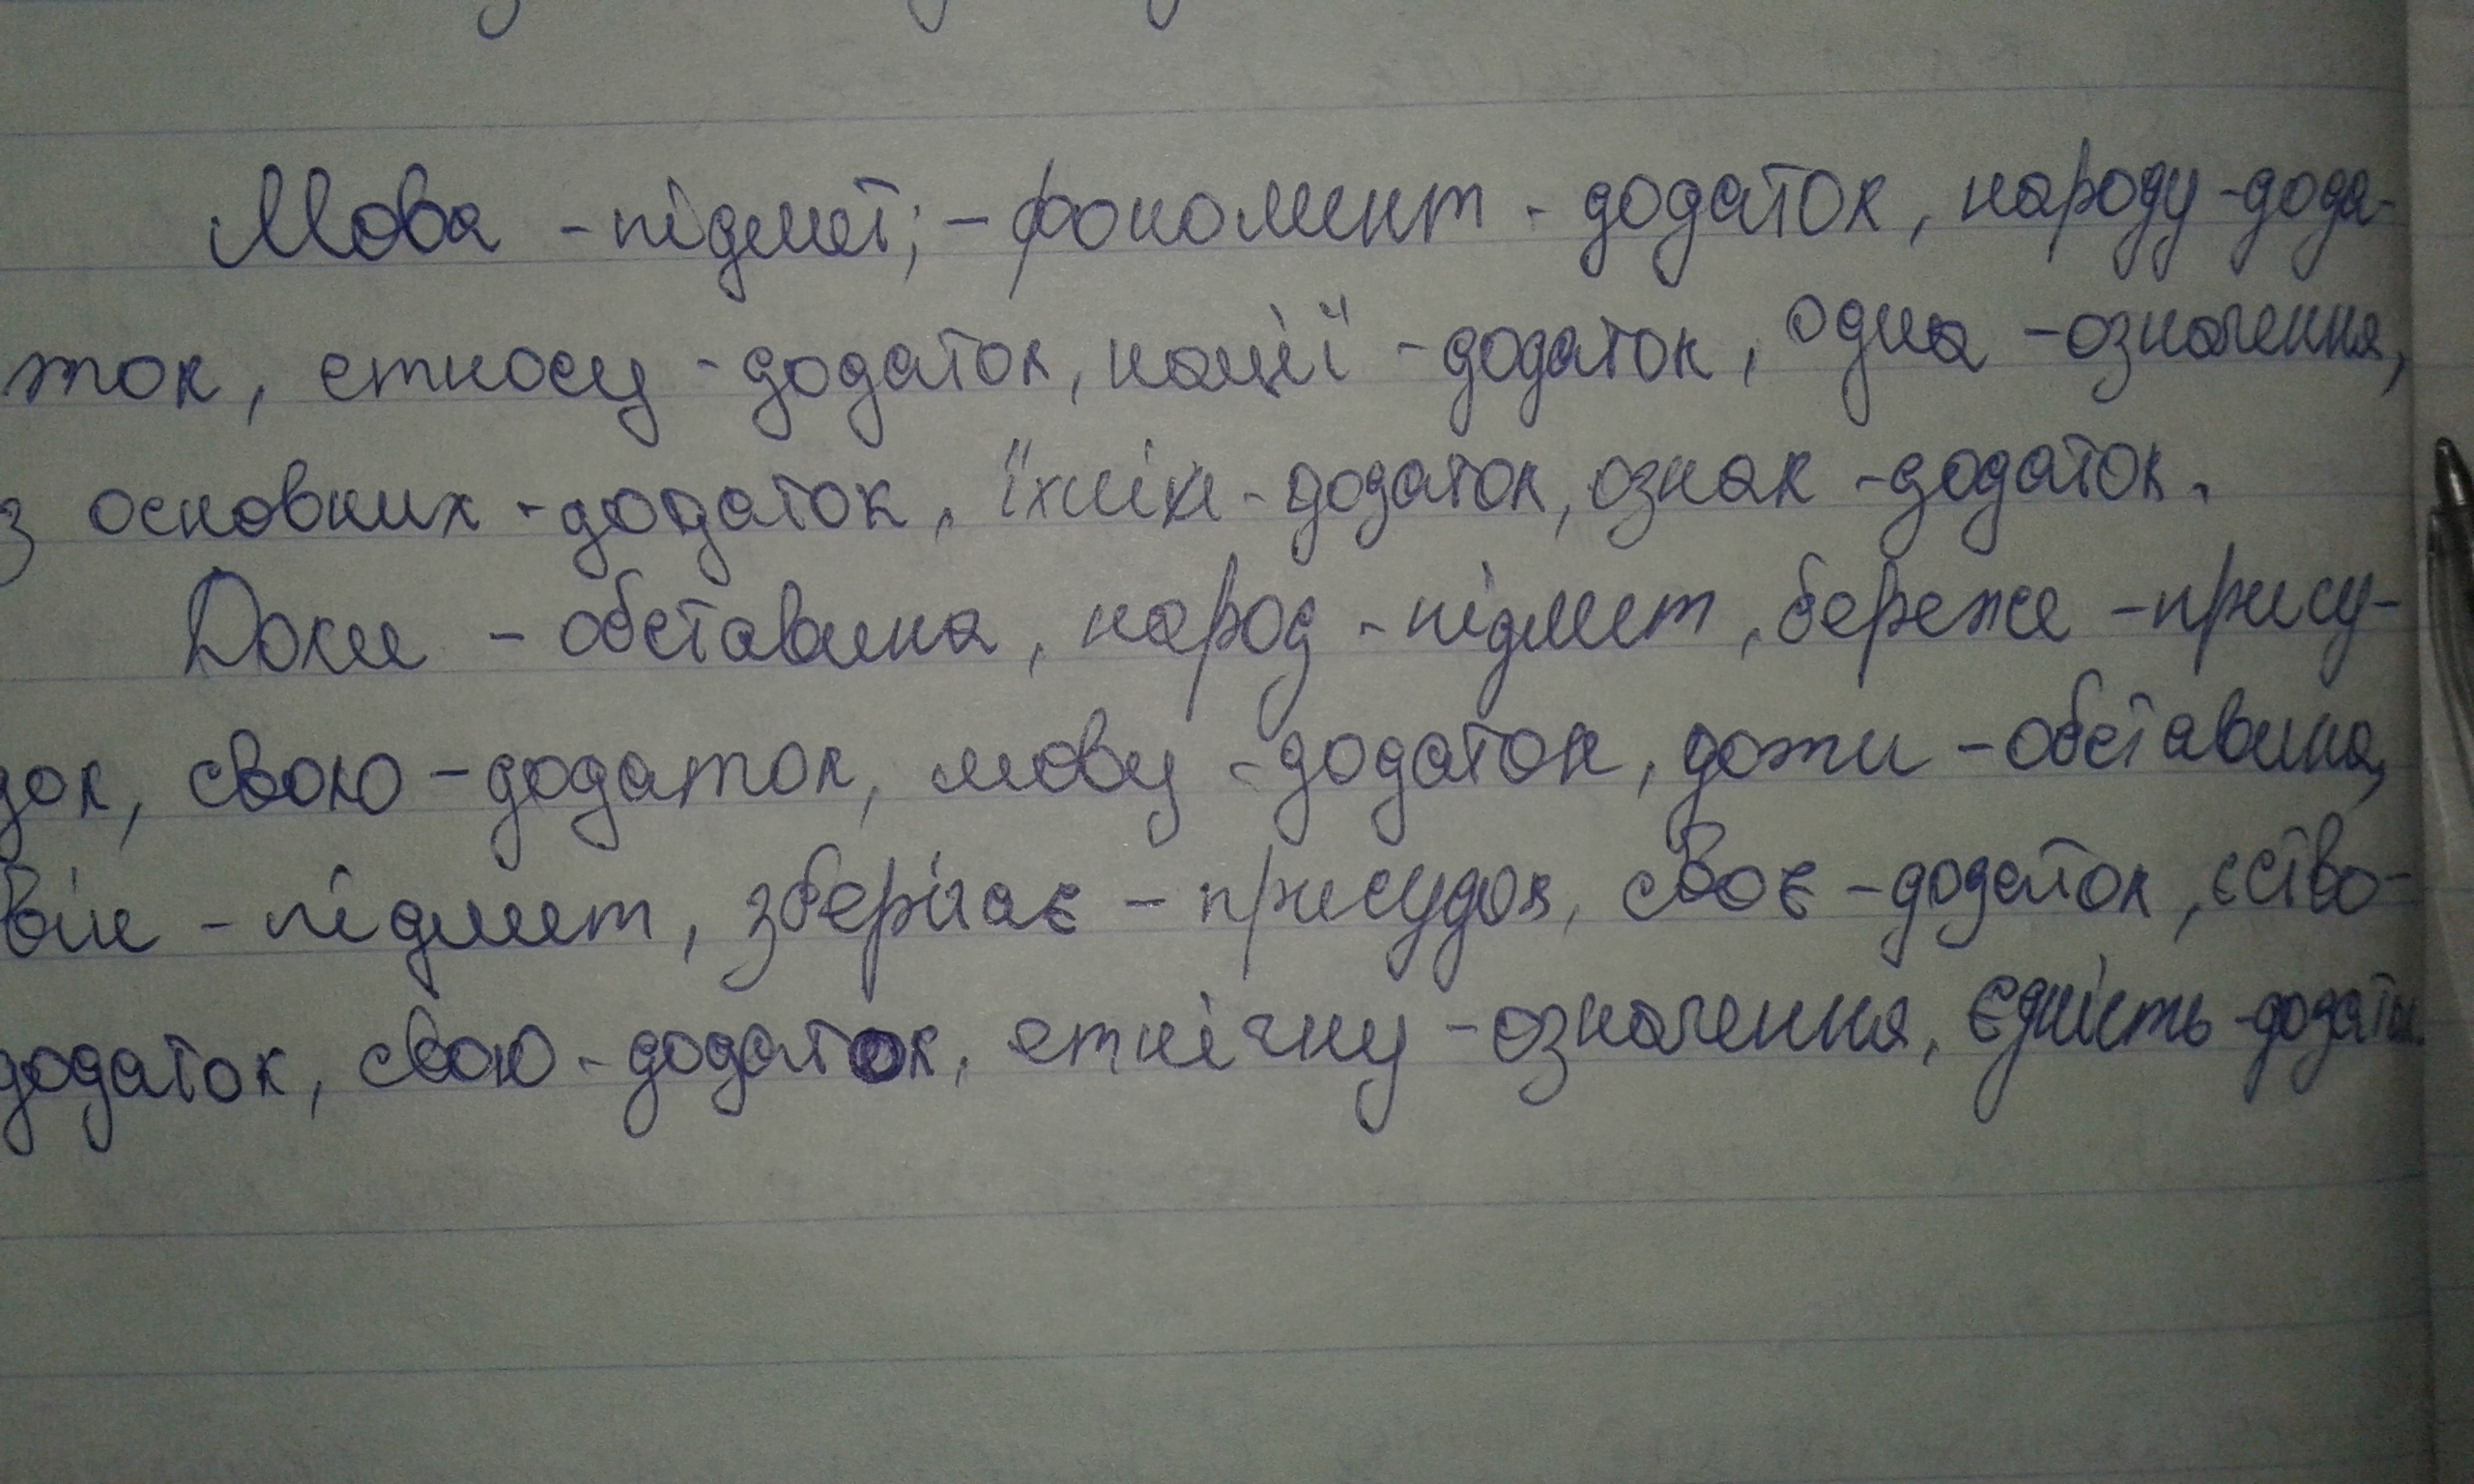 Мова - підмет; - фономент - додаток, народу - дода-
ток, етносу - додаток, нації - додаток, одна - означення,
з основних - додаток, їхніх - додаток, ознак - додаток.
Доки - обставина, народ - підмет, береже - прису-
док, свою - додаток, мову - додаток, доти - обставина,
він - підмет, зберігає - присудок, своє - додаток, єство-
додаток, свою - додаток, етнічну - означення, єдність - додаток.